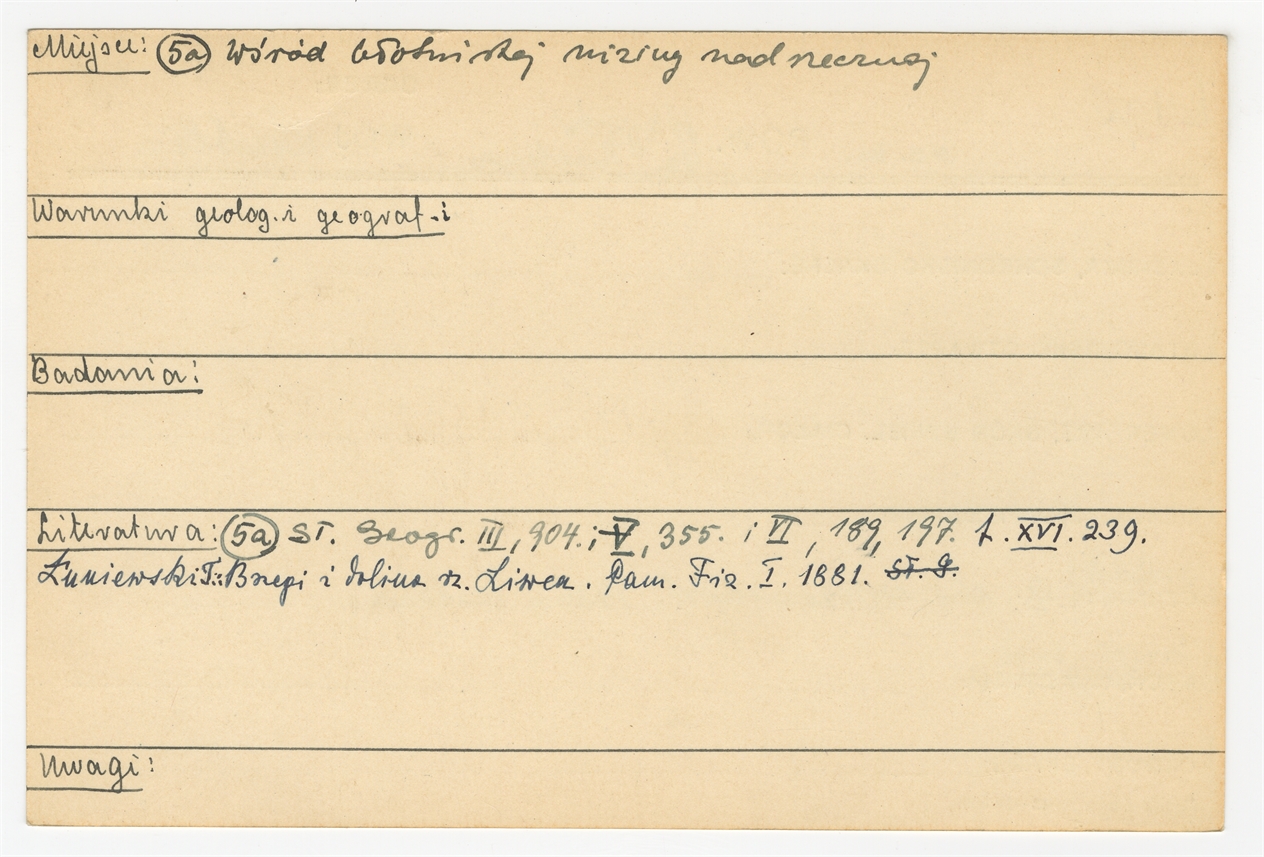 Miejsce: 5a Wśród błotnistej niziny nadrzecznej
Warunki geolog. i geograf-i
Badania:
Literatura: 5a Sł. Geogr. III, 904. i V, 355. i VI, 189, 197. t. XVI. 239.
Łuniewski T.: Brzegi i dolina rz. Liwca. Pam. Fiz. I. 1881. Sł. G.
Uwagi: